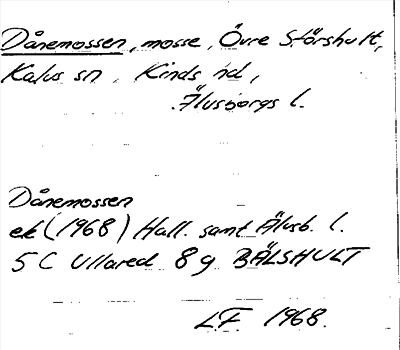 Dånemossen, mosse, Övre Störshult,
Kalvs sn, Kinds hd,
Älvsborgs l.
Dånemossen
ek (1968) Hall. samt Älvsb. l.
5 C Ullared 8 g BÄLSHULT
L.F. 1968.